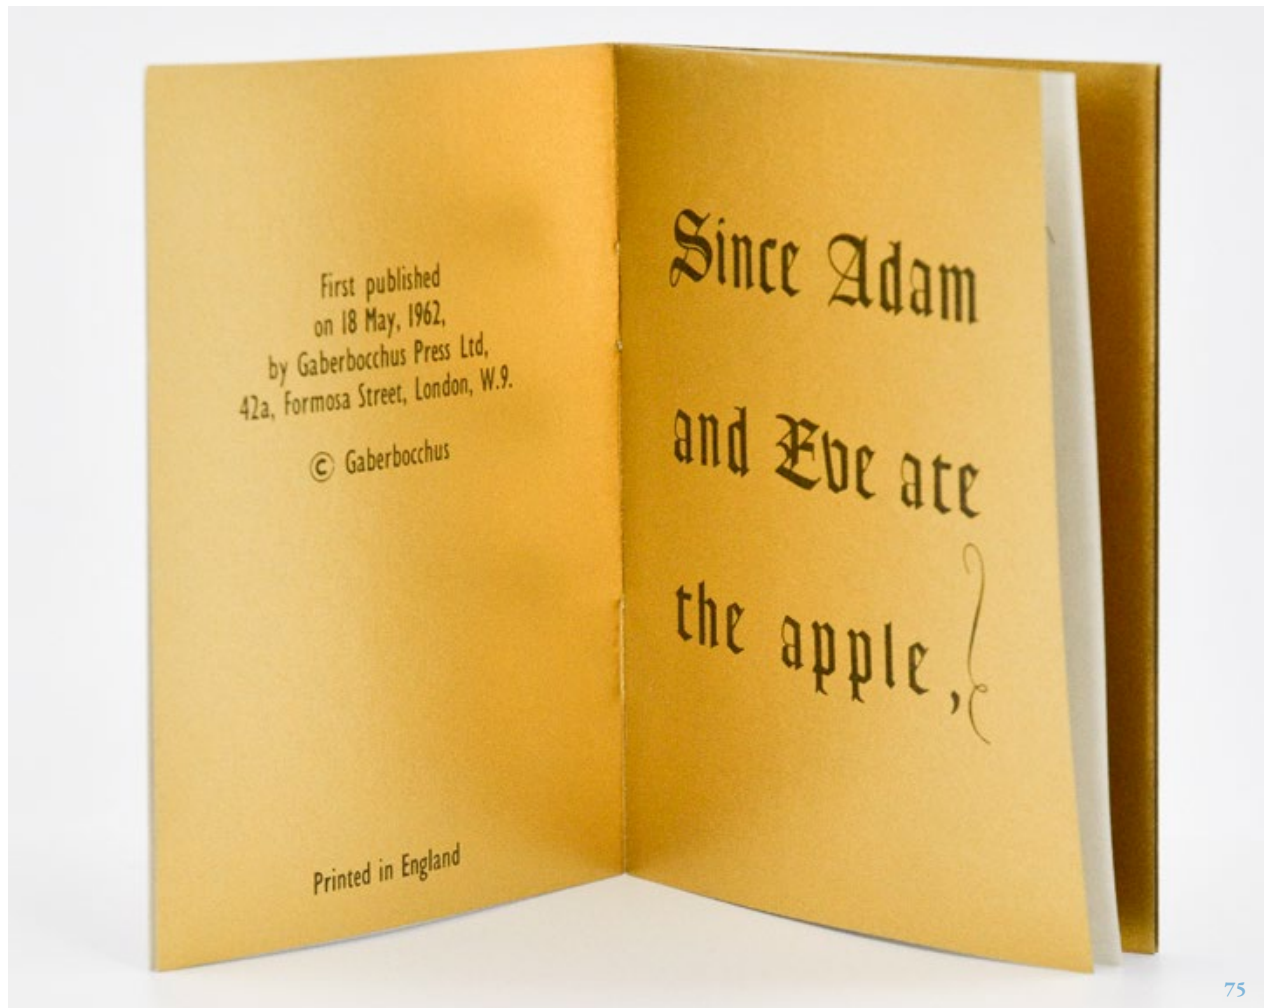 First published
on 18 May, 1962,
by Gaberbocchus Press Ltd,
42a, Formosa Street, London, W.9.
© Gaberbocchus
Printed in England
Since Adam
and Eve ate
the apple,
75